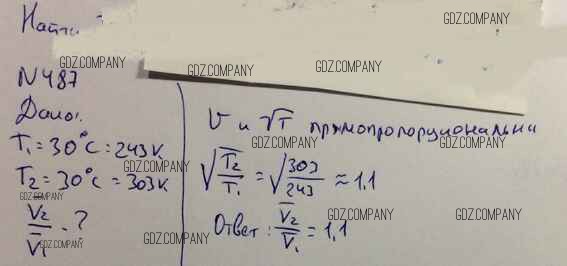 Найти
N 487
Дано:
T₁ = 30°C = 243 K
T₂ = 30°C = 303 K
V̅₂/V̅₁ - ?
V и √T прямопропорциональна
√(T₂/T₁) = √(303/243) ≈ 1,1
Ответ: V̅₂/V̅₁ = 1,1
GDZ.COMPANY
GDZ.COMPANY
GDZ.COMPANY
GDZ.COMPANY
GDZ.COMPANY
GDZ.COMPANY
GDZ.COMPANY
GDZ.COMPANY
GDZ.COMPANY
GDZ.COMPANY
GDZ.COMPANY
GDZ.COMPANY
GDZ.COMPANY